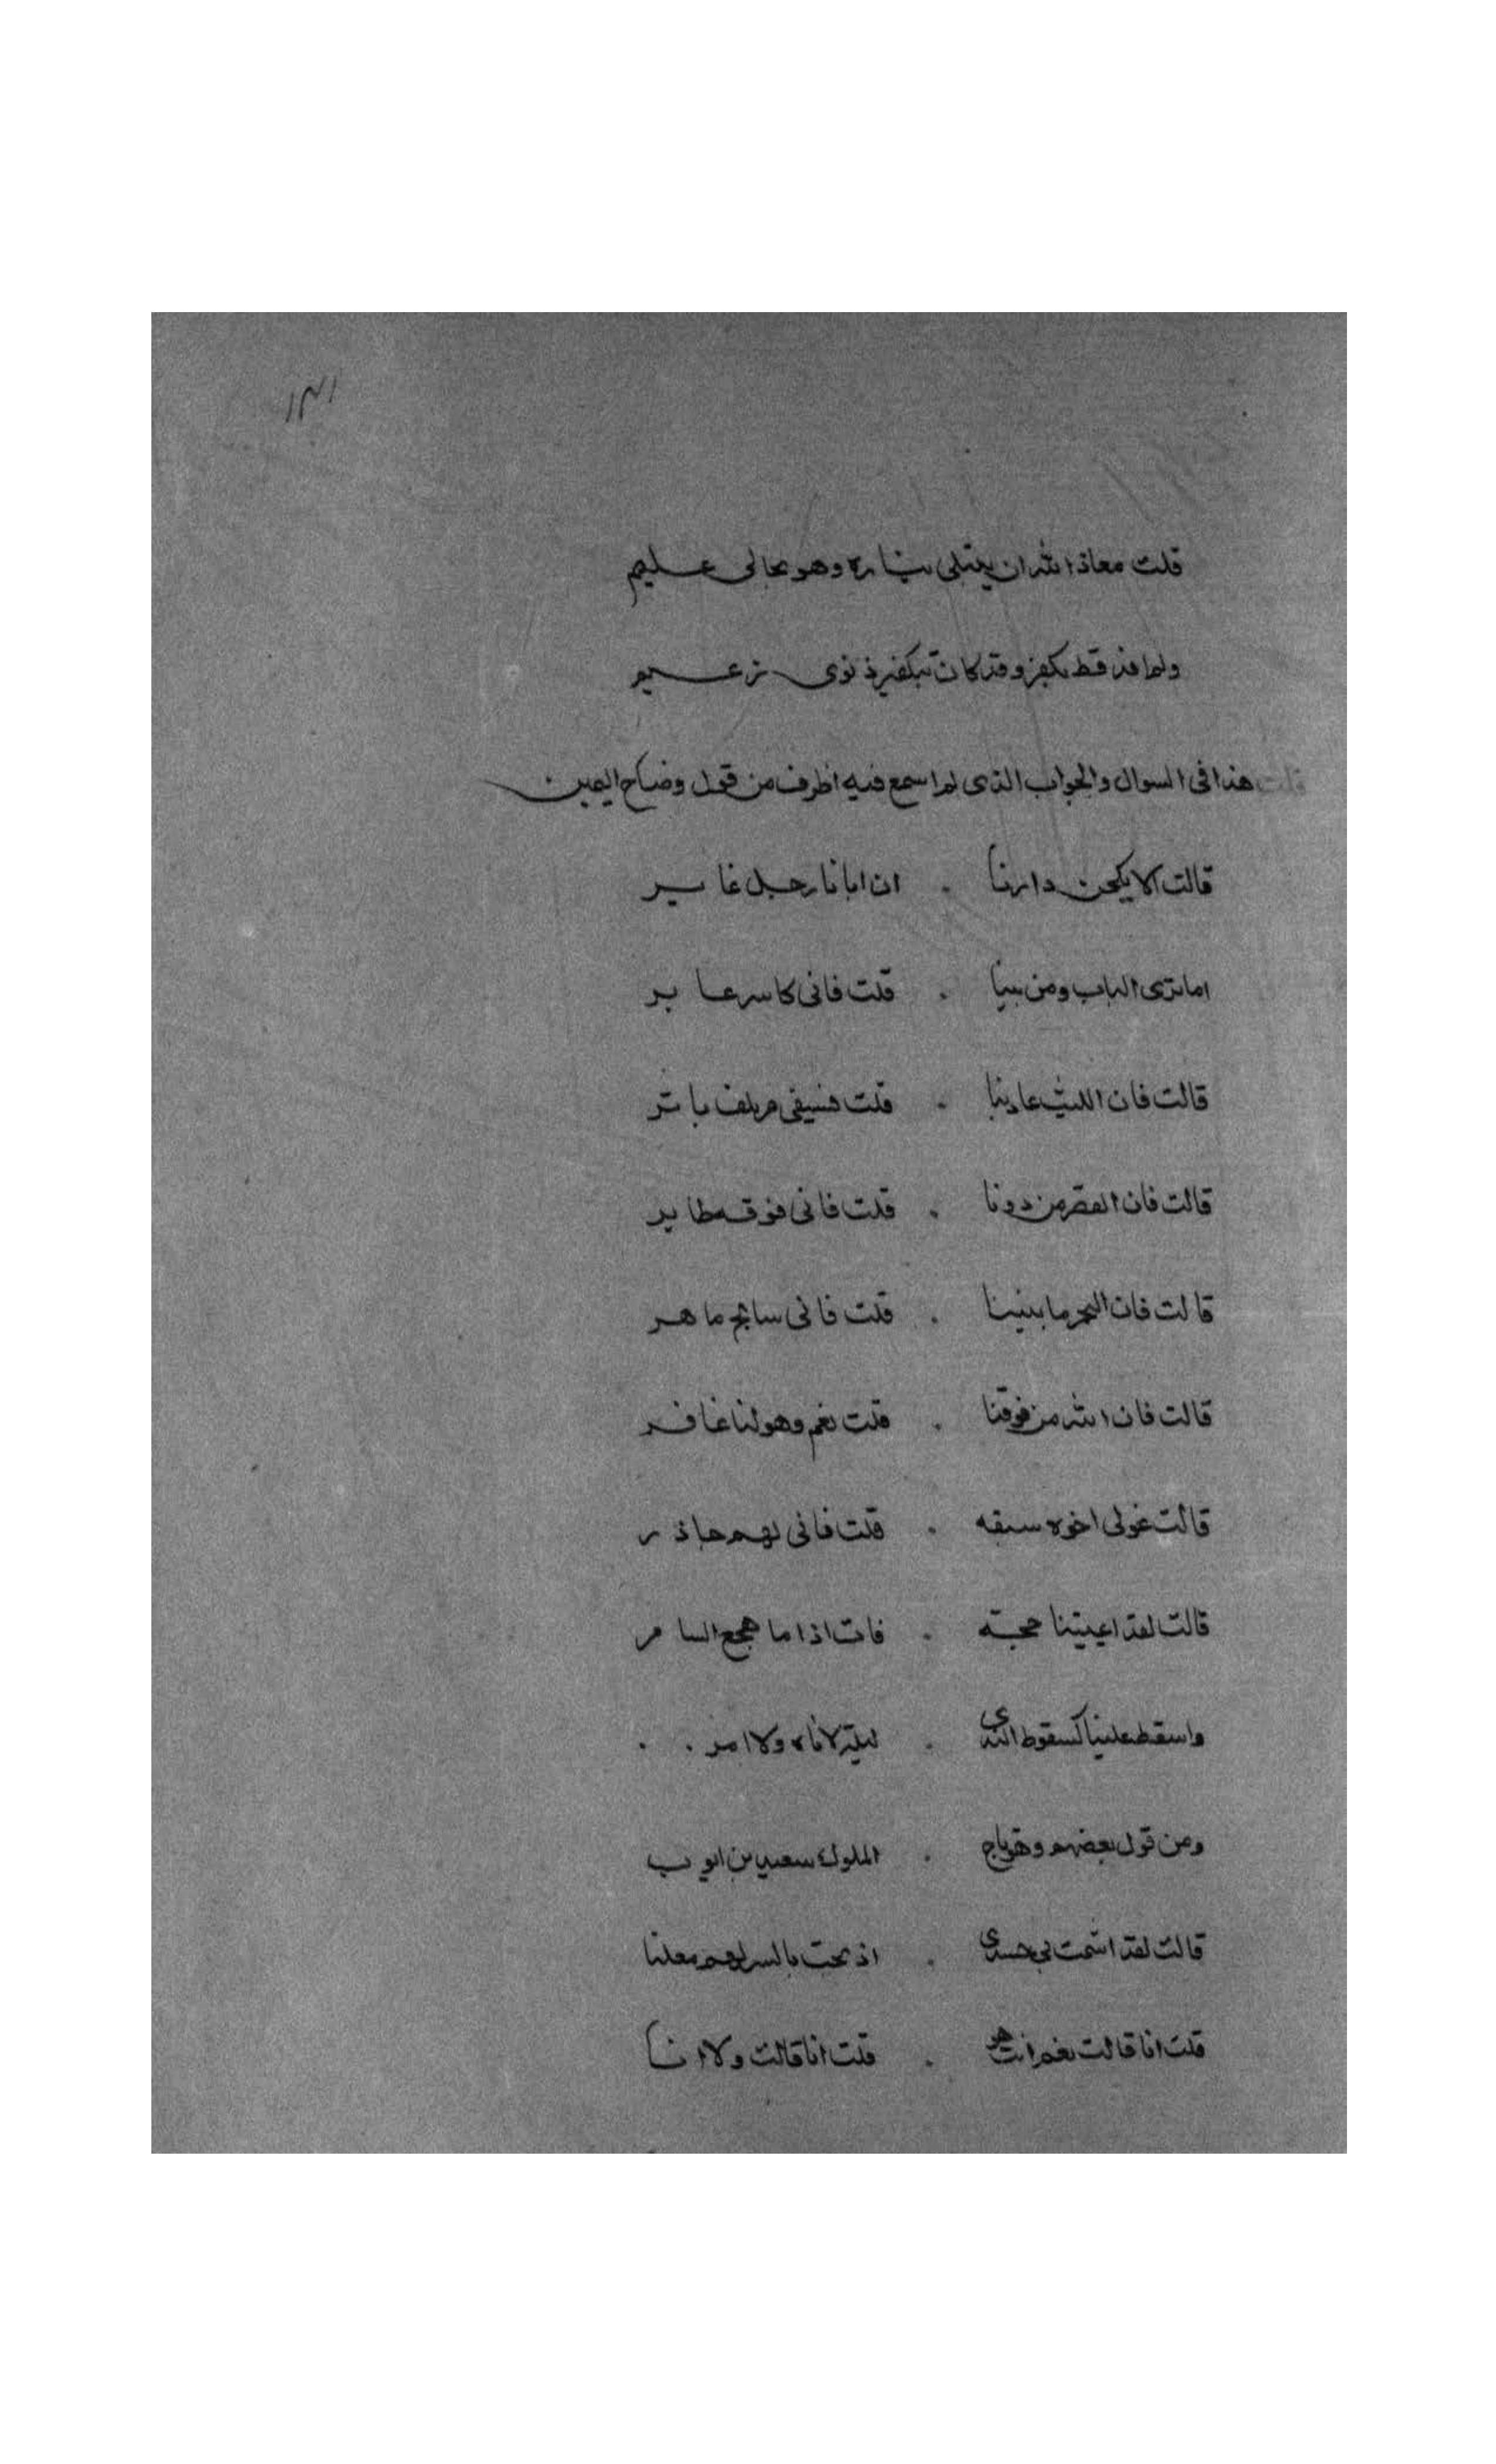 ١٣١
قلت معاذ الله ان يبتلى بناره وهو بحالى عليم
ولما فذ قط بكفر وقد كان تبكفير ذنوى زعيم
قلت هذا فى السوال والجواب الذى لم اسمع فيه اظرف من قول وضاح اليمن
قالت الا يلجن دارنا . ان ابانا رجل غاير
اما ترى الباب ومن بيننا . قلت فانى كاسر عابر
قالت فان الليث عادينا . قلت فسيفى مرهف باتر
قالت فان القصر من دوننا . قلت فانى فوقه طاير
قالت فان البحر ما بيننا . قلت فانى سابح ماهر
قالت فان الله من فوقنا . قلت نعم وهو لنا غافر
قالت فحولى اخوه سبعه . قلت فانى لهم حاذر
قالت لقد اعييتنا حجته . فات اذا ما هجع السامر
واسقط علينا كسقوط الندى . ليلة لا ناه ولا امر . .
ومن قول بعضهم وهو تاج . الملوك سعيد بن ايوب
قالت لقد اشمت بى حسدى . اذ بحت بالسر لهم معلنا
قلت انا قالت نعم انت هو . قلت انا قالت ولا انا